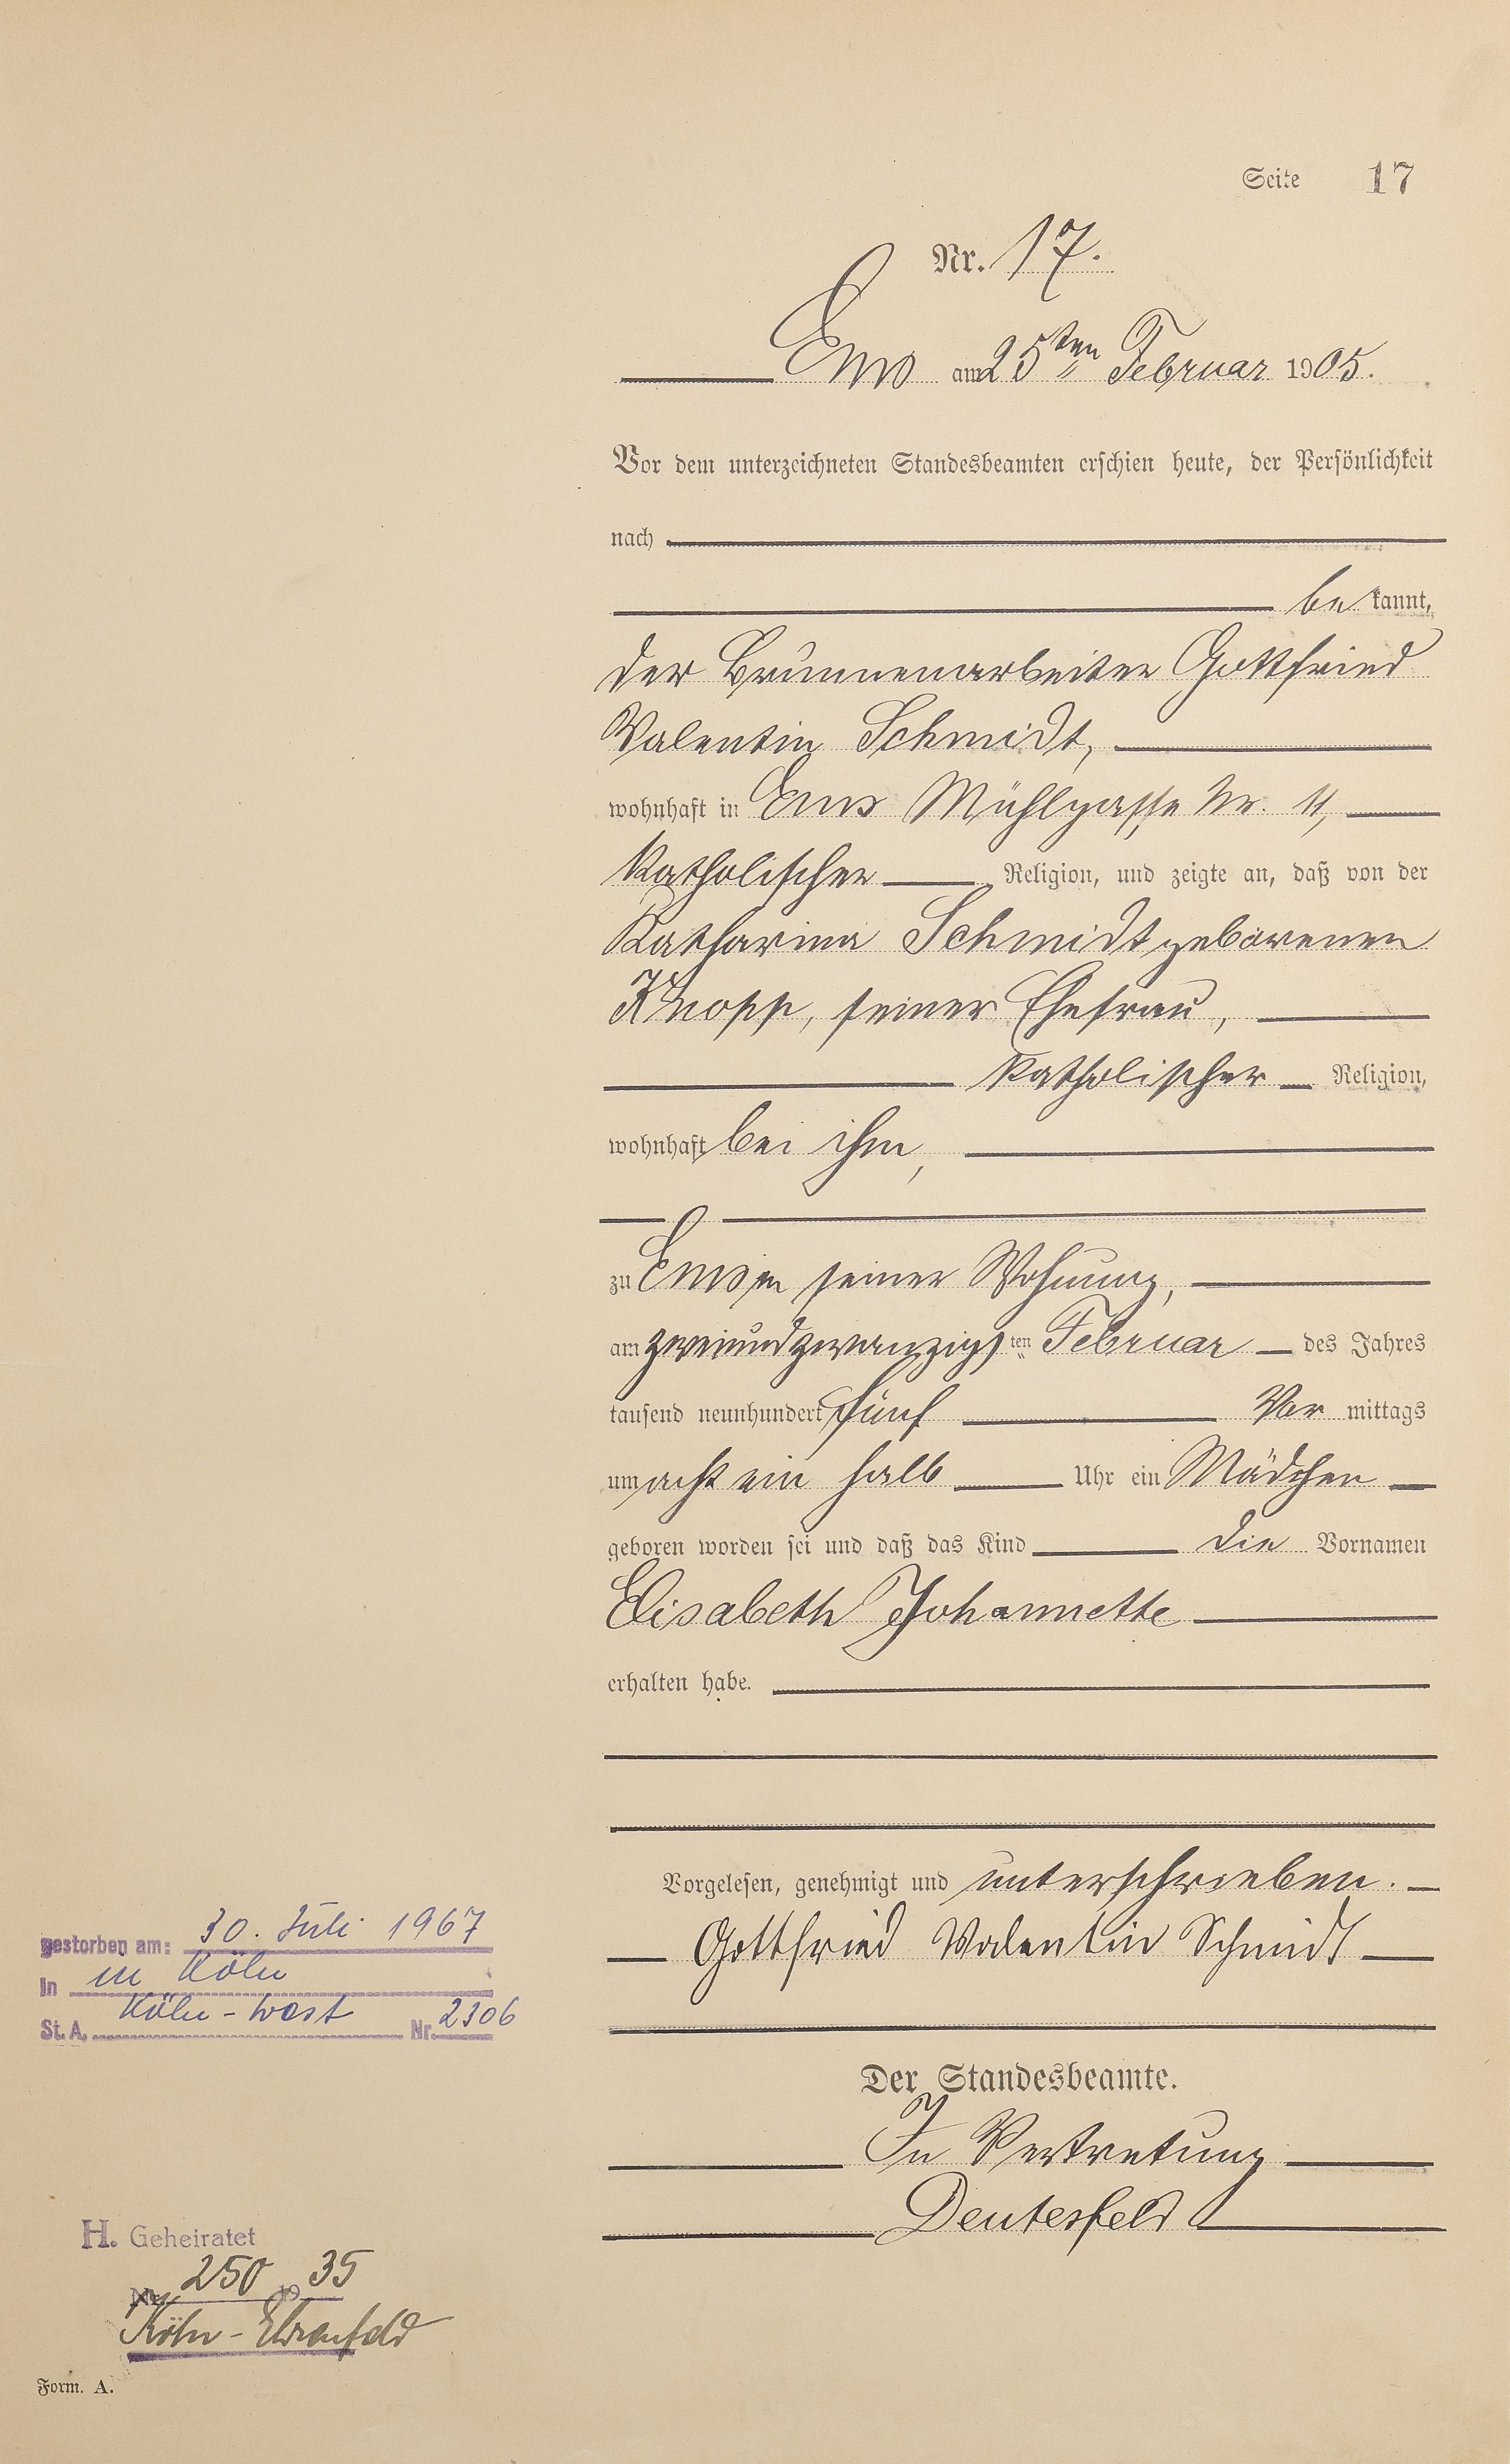 Seite 17
Nr. 17.
Ems am 25ten Februar 1905.
Vor dem unterzeichneten Standesbeamten erschien heute, der Persönlichkeit
nach
be kannt,
der Brunnenarbeiter Gottfried
Valentin Schmidt,
wohnhaft in Ems Mühlgasse Nr. 11,
katholischer Religion, und zeigte an, daß von der
Katharina Schmidt geborenen
Knopp, seiner Ehefrau,
katholischer Religion,
wohnhaft bei ihm,
zu Ems in seiner Wohnung,
am zweiundzwanzigsten Februar des Jahres
tausend neunhundert fünf Vor mittags
um acht ein halb Uhr ein Mädchen
geboren worden sei und daß das Kind die Vornamen
Elisabeth Johannette
erhalten habe.
Vorgelesen, genehmigt und unterschrieben.
Gottfried Valentin Schmidt
Der Standesbeamte.
In Vertretung
Deutesfeld
gestorben am: 30. Juli 1967
in in Köln
St. A. Köln-West Nr. 2306
H. Geheiratet
Nr. 250 1935
Köln-Ehrenfeld
Form. A.